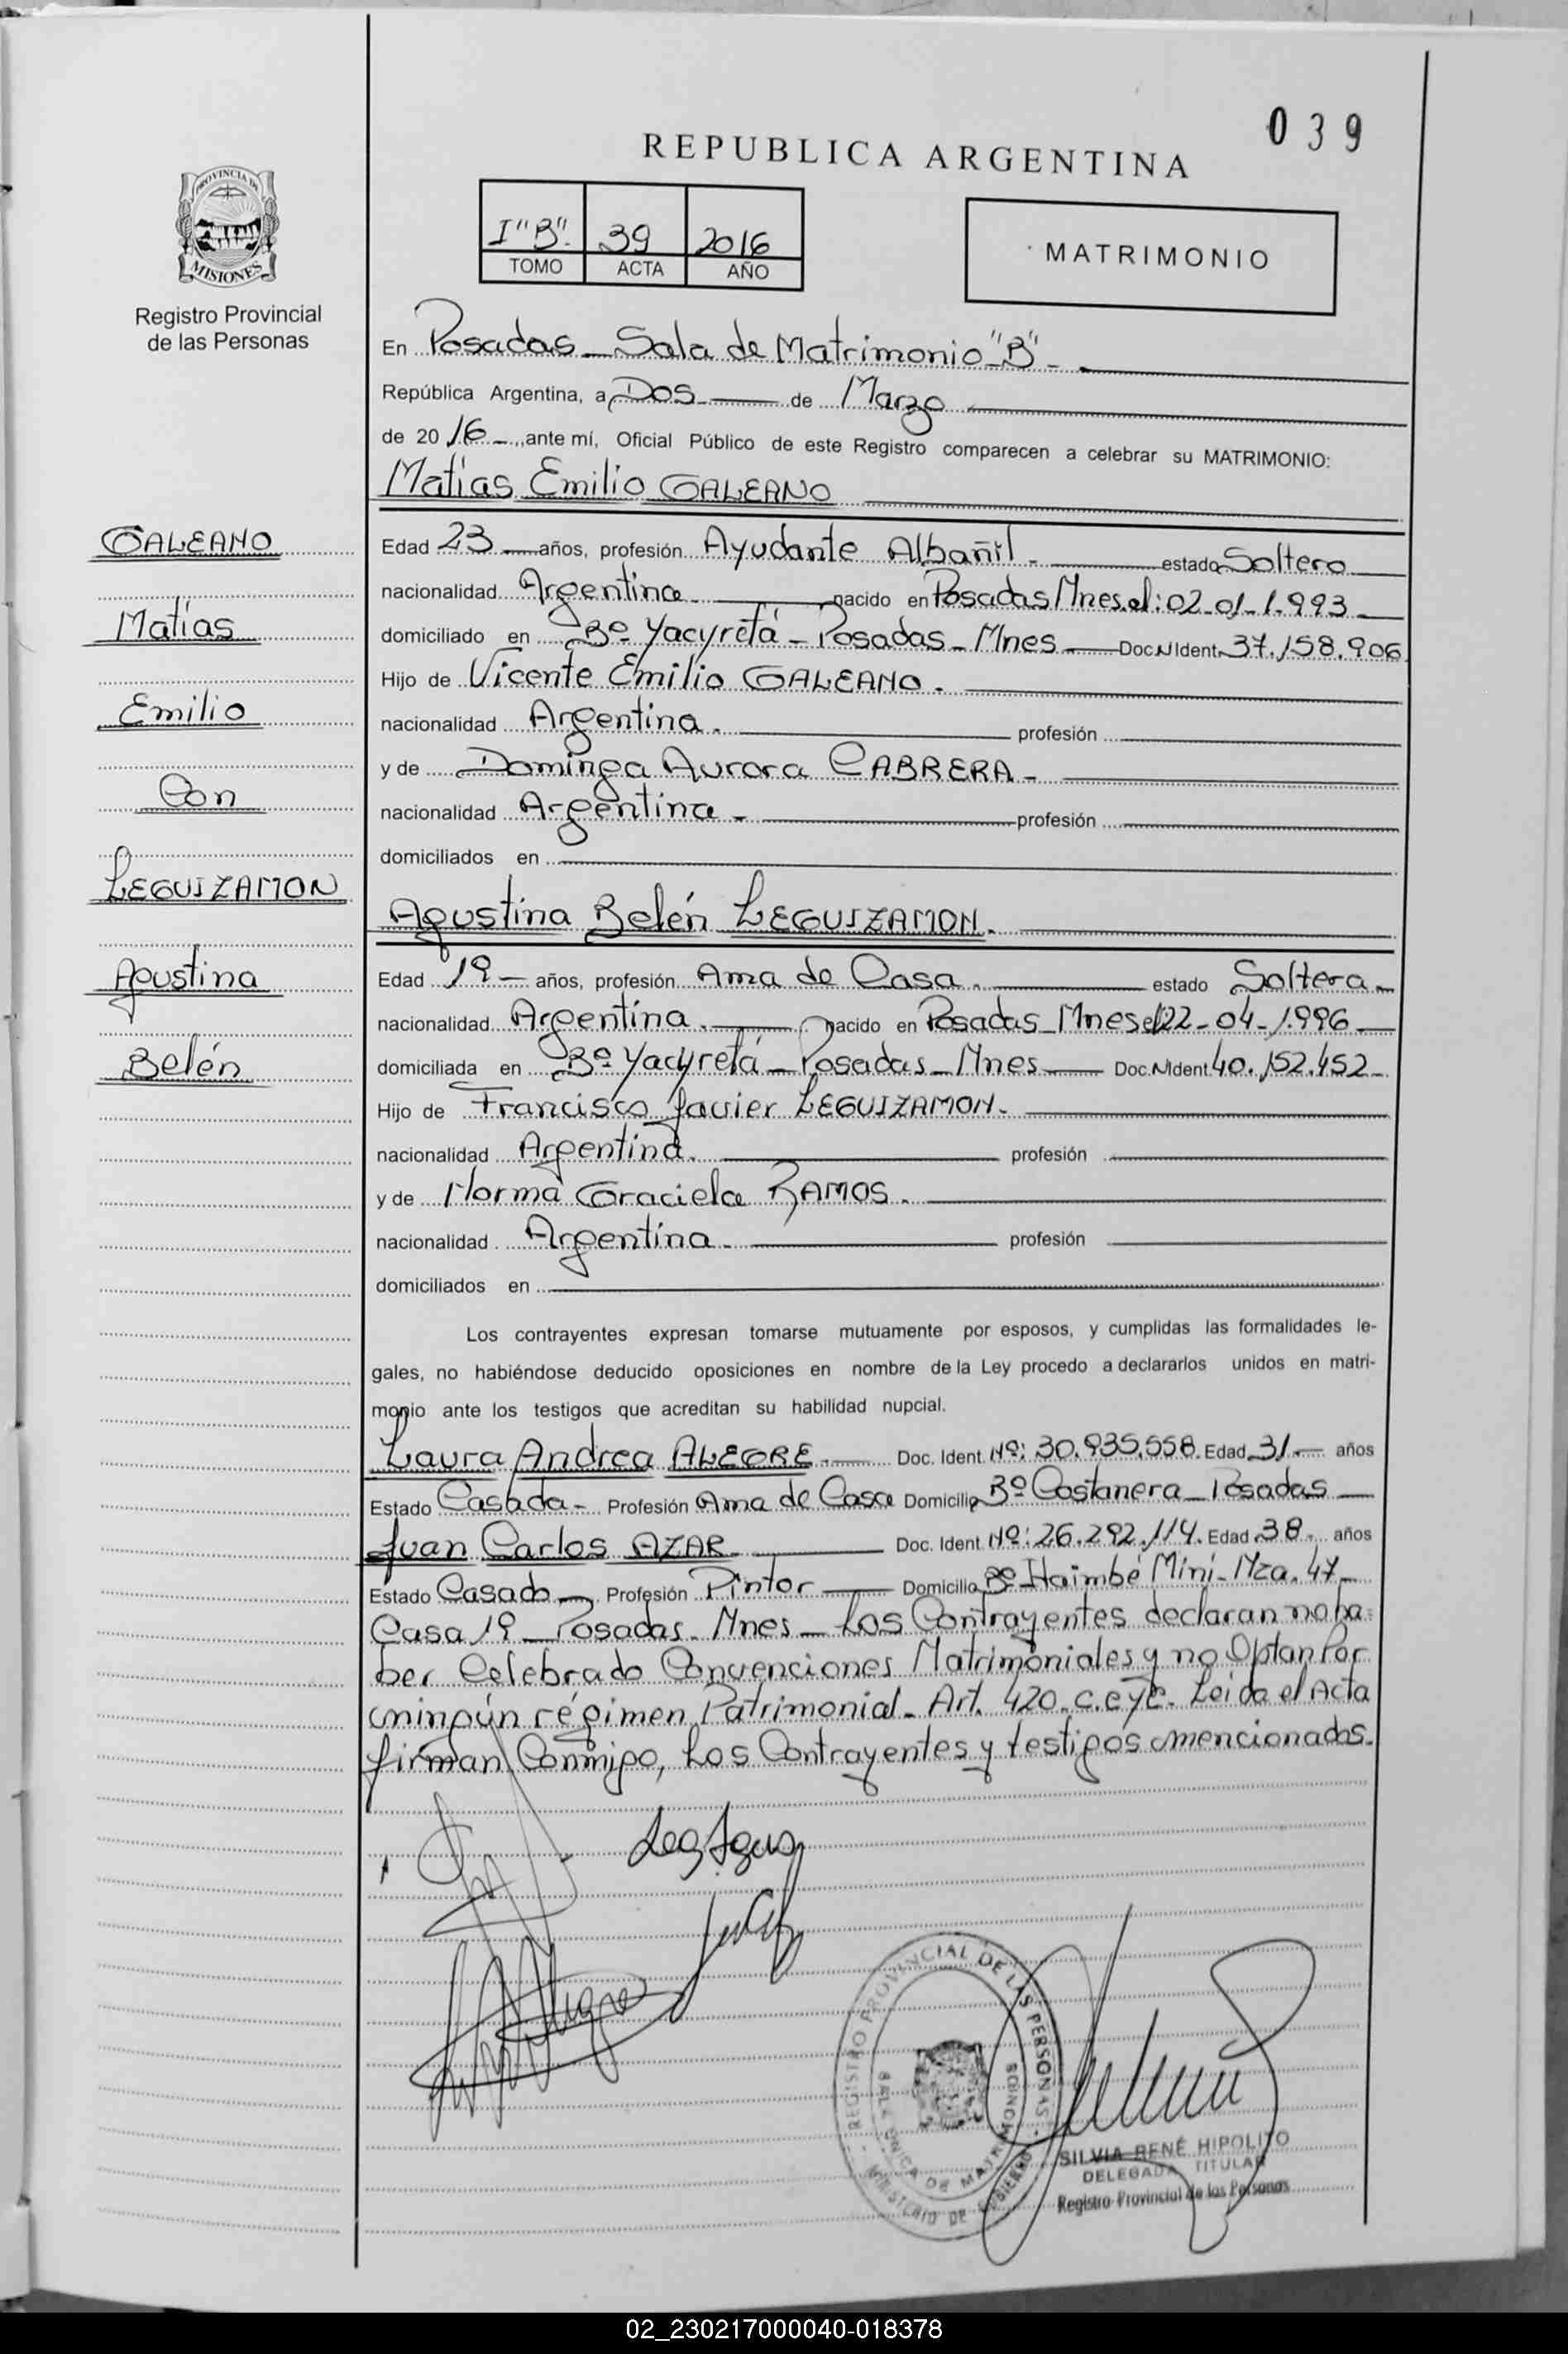 039
REPUBLICA ARGENTINA
PROVINCIA DE
MISIONES
Registro Provincial
de las Personas
I "B". 39 2016
TOMO ACTA AÑO
MATRIMONIO
En Posadas - Sala de Matrimonio "B" -
República Argentina, a Dos de Marzo
de 2016 -, ante mí, Oficial Público de este Registro comparecen a celebrar su MATRIMONIO:
Matías Emilio GALEANO
GALEANO
Matías
Emilio
Con
LEGUIZAMON
Agustina
Belén
Edad 23 años, profesión Ayudante Albañil - estado Soltero
nacionalidad Argentina nacido en Posadas Mnes. el: 02-01-1.993
domiciliado en Bº Yacyretá - Posadas - Mnes Doc. N Ident. 37.158.906
Hijo de Vicente Emilio GALEANO.
nacionalidad Argentina. profesión
y de Dominga Aurora CABRERA -
nacionalidad Argentina - profesión
domiciliados en
Agustina Belén LEGUIZAMON.
Edad 19 - años, profesión Ama de Casa. estado Soltera -
nacionalidad Argentina. nacido en Posadas - Mnes el 22-04-1.996
domiciliada en Bº Yacyretá - Posadas - Mnes Doc. N Ident. 40.152.452 -
Hijo de Francisco Javier LEGUIZAMON -
nacionalidad Argentina. profesión
y de Norma Graciela RAMOS.
nacionalidad Argentina - profesión
domiciliados en
Los contrayentes expresan tomarse mutuamente por esposos, y cumplidas las formalidades le-
gales, no habiéndose deducido oposiciones en nombre de la Ley procedo a declararlos unidos en matri-
monio ante los testigos que acreditan su habilidad nupcial.
Laura Andrea ALEGRE - Doc. Ident. Nº: 30.935.558. Edad 31 - años
Estado Casada - Profesión Ama de Casa Domicilio Bº Costanera - Posadas
Juan Carlos AZAR Doc. Ident. Nº: 26.292.114. Edad 38 - años
Estado Casado - Profesión Pintor Domicilio Bº Itaimbé Miní - Mza. 47 -
Casa 19 - Posadas - Mnes - Los Contrayentes declaran no ha-
ber Celebrado Convenciones Matrimoniales y no Optan Por
ningún régimen Patrimonial - Art. 420. C.C y C. Leida el Acta
firman Conmigo, Los Contrayentes y testigos mencionados.
REGISTRO PROVINCIAL DE LAS PERSONAS
SALA UNICA DE MATRIMONIOS
MINISTERIO DE GOBIERNO
SILVIA RENÉ HIPOLITO
DELEGADA TITULAR
Registro Provincial de las Personas
02_230217000040-018378